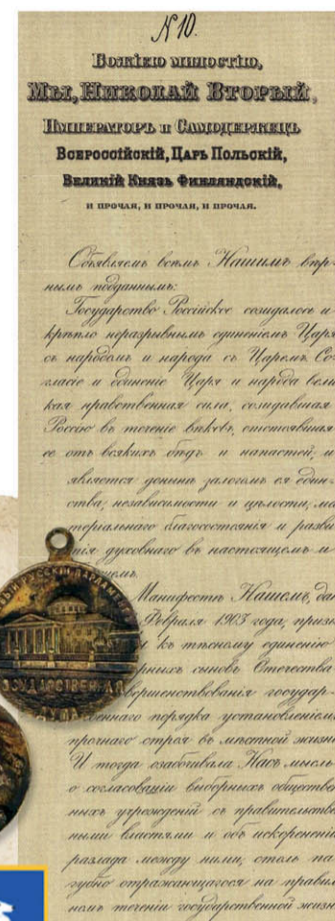 N 10.
Божіею милостію,
Мы, Николай Вторый,
Императоръ и Самодержецъ
Всероссійскій, Царь Польскій,
Великій Князь Финляндскій,
и прочая, и прочая, и прочая.
Объявляемъ всемъ Нашимъ вѣр-
нымъ подданнымъ:
Государство Россійское созидалось и
крѣпло неразрывнымъ единеніемъ Царя
съ народомъ и народа съ Царемъ. Со-
гласіе и единеніе Царя и народа вели-
кая нравственная сила, созидавшая
Россію въ теченіе вѣковъ, отстоявшая
ее отъ всякихъ бѣдъ и напастей, и
является донынѣ залогомъ ея един-
ства, независимости и цѣлости, ма-
теріальнаго благосостоянія и разви-
тія духовнаго въ настоящемъ и
Манифестѣ Нашемъ, дан
Февраля 1903 года, призы
къ тѣсному единенію
рныхъ сыновъ Отечества
вершенствованія государ-
веннаго порядка установленіемъ
прочнаго строя въ мѣстной жизни.
И тогда озабочивала Насъ мысль
о согласованіи выборныхъ обществен-
ныхъ учрежденій съ правительствен-
ными властями и объ искорененіи
разлада между ними, столь па-
губно отражающагося на правиль-
номъ теченіи государственной жизни.
ГОСУДАРСТВЕННАЯ
ДУМА